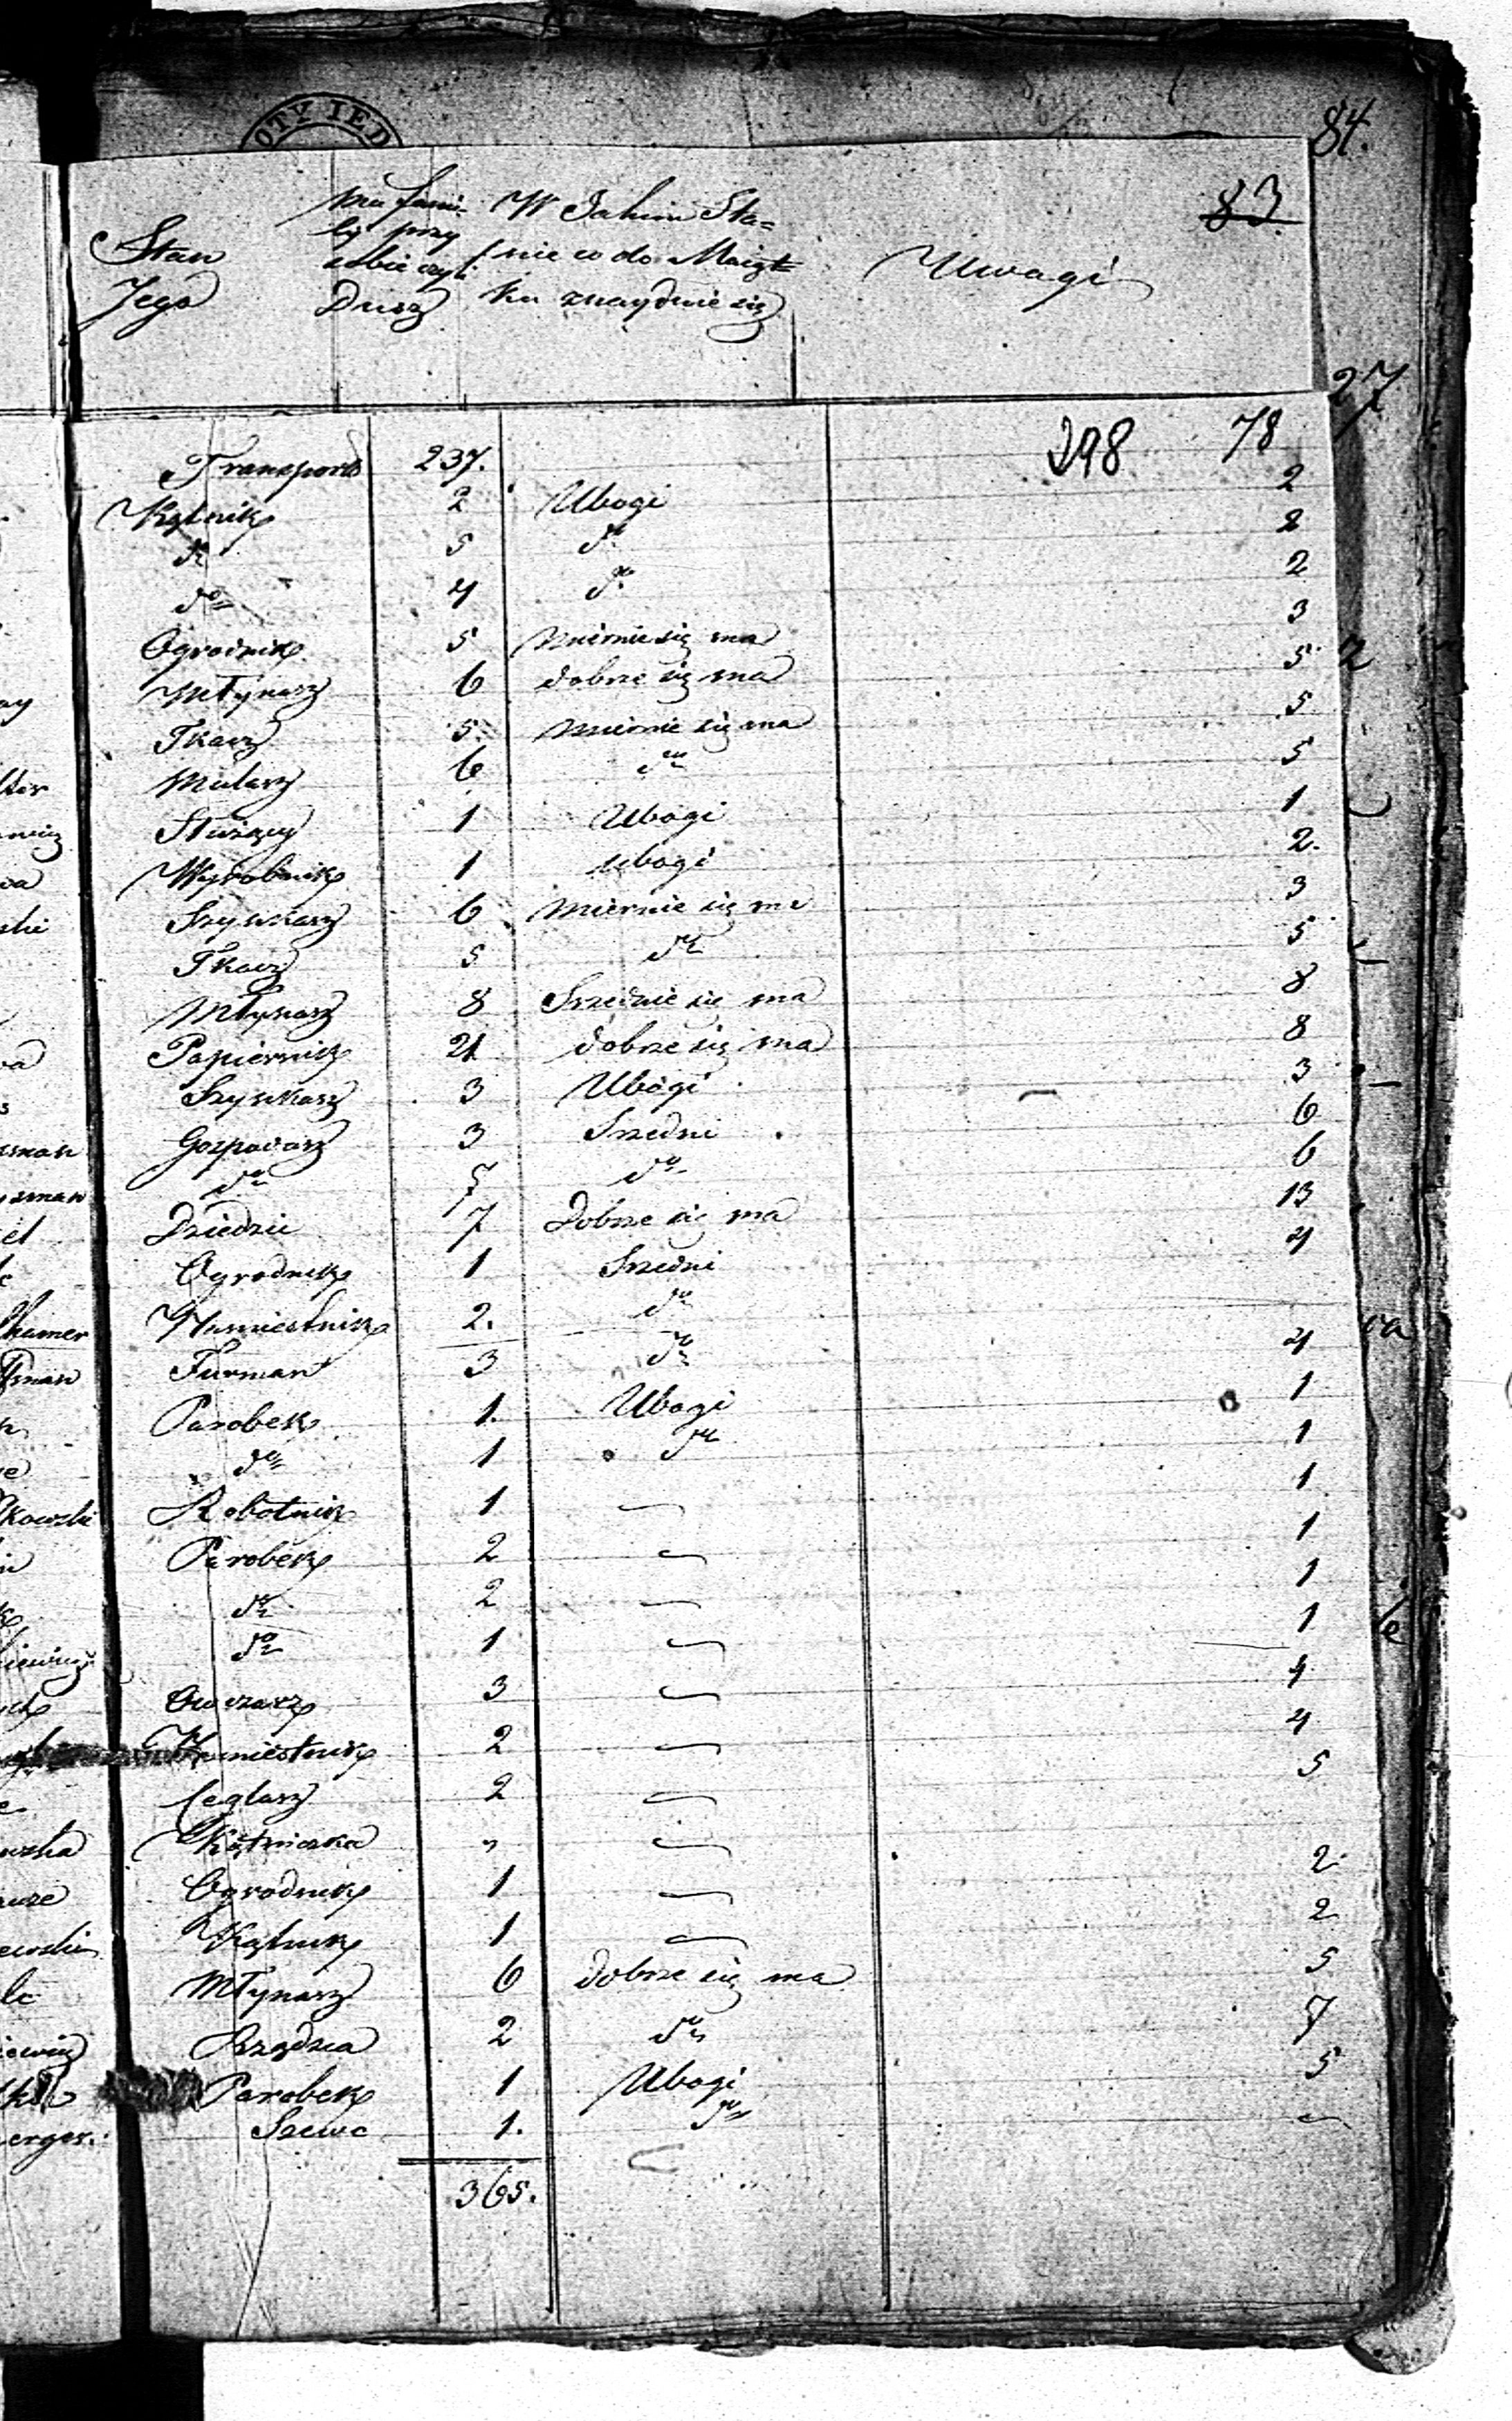 OTY IED
84.
83.
Stan Jego
Ma fami-
lij przy
sobie czyli
Dusz
W Jakim Sta-
nie co do Maiąt-
ku znayduie się
Uwagi
27
298 78
Transport 237.
Kątnik 2 Ubogi 2
do 5 do 2
do 4 do 2
Ogrodnik 5 miernie się ma 3
Młynarz 6 dobrze się ma 5
Tkacz 5. miernie się ma 5
Mularz 6 do 5
Służący 1 Ubogi 1
Wyrobnik 1 ubogi 2.
Szynkarz 6 miernie się ma 3
Tkacz 5 do 5
Młynarz 8 Szrednie się ma 8
Papiernik 21 dobrze się ma 8
Szynkarz 3 Ubogi 3
Gospodarz 3 Szredni 6
do 5 do 6
Dziedzic 7 Dobrze się ma 13
Ogrodnik 1 Szredni 4
Namiestnik 2. do
Furman 3 do 4
Parobek 1. Ubogi 1
do 1 do 1
Robotnik 1 — 1
Parobek 2 — 1
do 2 — 1
do 1 — 1
Owczarz 3 — 4
Namiestnik 2 — 4
Ceglarz 2 — 5
Kątniczka " —
Ogrodnik 1 — 2
Kątnik 1 — 2
Młynarz 6 dobrze się ma 5
Rządzca 2 do 7
Parobek 1 Ubogi 5
Szewc 1. do —
365.